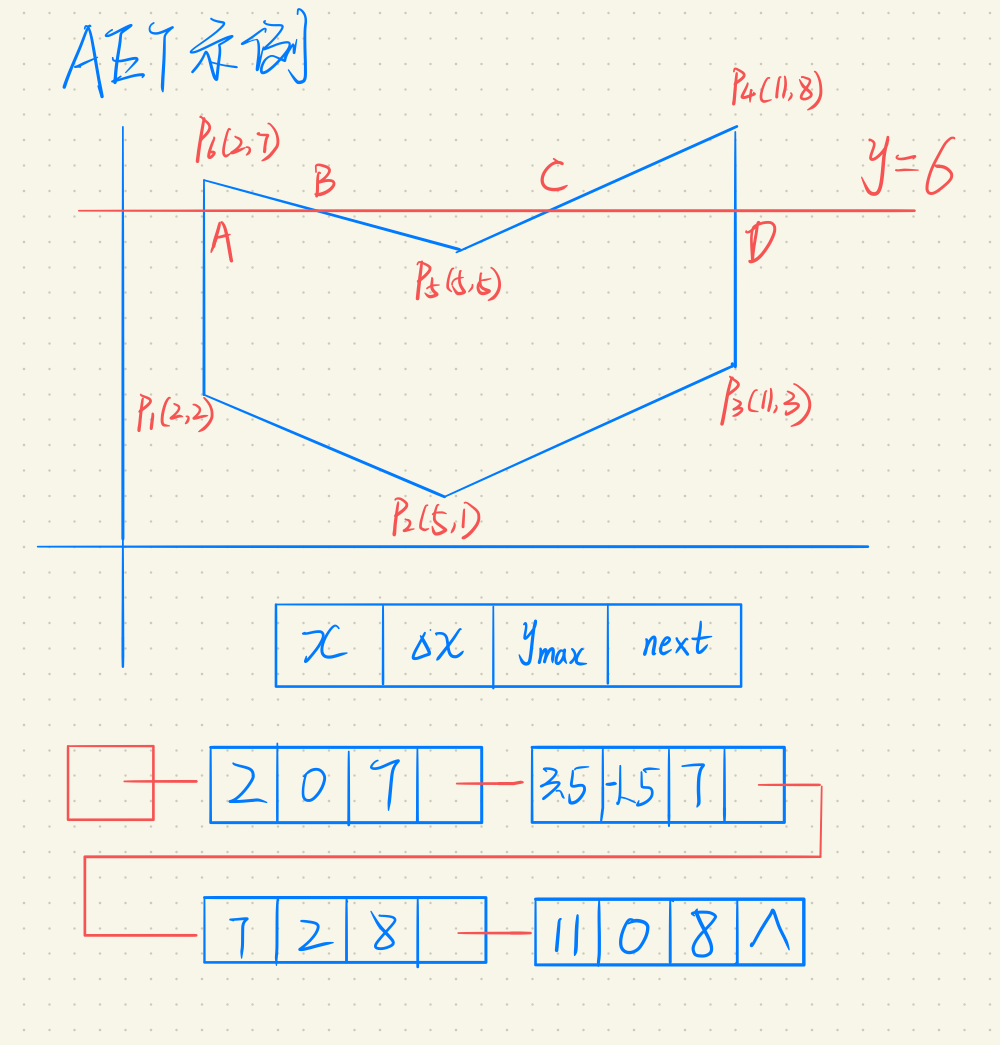 AET示例
P4(11,8)
P6(2,7)
B
C
y=6
A
D
P5(5,5)
P1(2,2)
P3(11,3)
P2(5,1)
x Δx ymax next
2 0 7
3.5 -1.5 7
7 2 8
11 0 8 ∧